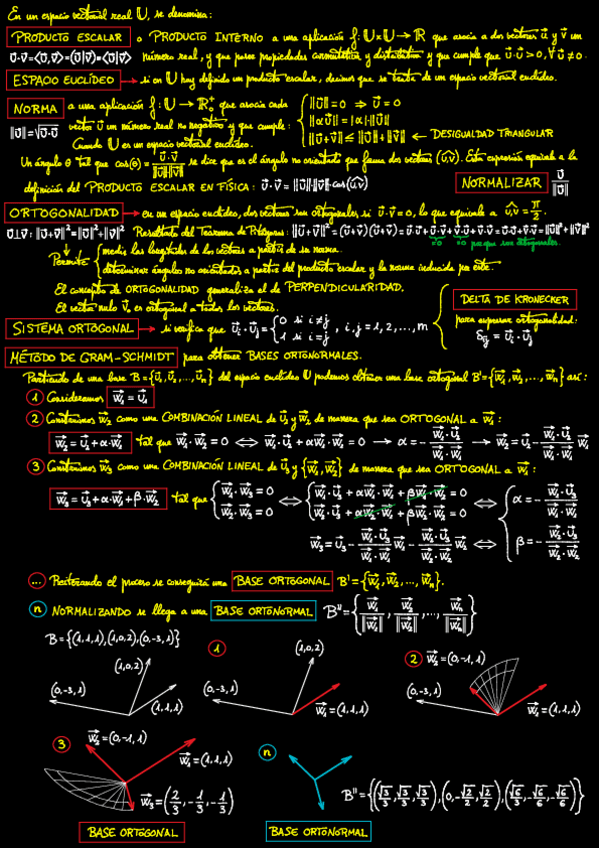 En un espacio vectorial real U, se denomina:
PRODUCTO ESCALAR o PRODUCTO INTERNO a una aplicación f: U×U → R que asocia a dos vectores u⃗ y v⃗ un
u⃗·v⃗=⟨u⃗,v⃗⟩=(u⃗|v⃗)=⟨u⃗|v⃗⟩ número real, y que posee propiedades conmutativa y distributiva y que cumple que u⃗·u⃗>0, ∀u⃗≠0.
ESPACIO EUCLÍDEO → si en U hay definido un producto escalar, decimos que se trata de un espacio vectorial euclídeo.
NORMA a una aplicación f: U → R₀⁺ que asocia cada
‖u⃗‖=√u⃗·u⃗ vector u⃗ un número real no negativo y que cumple:
‖u⃗‖=0 ⇒ u⃗=0
‖αu⃗‖=|α|·‖u⃗‖
‖u⃗+v⃗‖≤‖u⃗‖+‖v⃗‖ ← DESIGUALDAD TRIANGULAR
Cuando U es un espacio vectorial euclídeo.
Un ángulo θ tal que cos(θ)=u⃗·v⃗/‖u⃗‖‖v⃗‖ se dice que es el ángulo no orientado que forma dos vectores (u⃗,v⃗). Esta expresión equivale a la
definición del PRODUCTO ESCALAR EN FÍSICA: u⃗·v⃗=‖u⃗‖·‖v⃗‖·cos(u⃗,v⃗) NORMALIZAR u⃗/‖u⃗‖
ORTOGONALIDAD → en un espacio euclídeo, dos vectores son ortogonales si u⃗·v⃗=0, lo que equivale a u⃗,v⃗=π/2.
u⃗⊥v⃗: ‖u⃗+v⃗‖²=‖u⃗‖²+‖v⃗‖² Resultado del Teorema de Pitágoras: ‖u⃗+v⃗‖²=(u⃗+v⃗)(u⃗+v⃗)=u⃗·u⃗+u⃗·v⃗+v⃗·u⃗+v⃗·v⃗=u⃗·u⃗+v⃗·v⃗=‖u⃗‖²+‖v⃗‖²
=0 =0 porque son ortogonales
Permite
medir las longitudes de los vectores a partir de su norma.
determinar ángulos no orientados a partir del producto escalar y la norma inducida por este.
El concepto de ORTOGONALIDAD generaliza al de PERPENDICULARIDAD.
El vector nulo 0⃗, es ortogonal a todos los vectores.
DELTA DE KRONECKER
para expresar ortogonalidad:
δij=u⃗i·u⃗j
SISTEMA ORTOGONAL → si verifica que u⃗i·u⃗j={0 si i≠j
1 si i=j , i,j=1,2,...,m
MÉTODO DE GRAM-SCHMIDT para obtener BASES ORTONORMALES.
Partiendo de una base B={u⃗1,u⃗2,...,u⃗n} del espacio euclídeo U podemos obtener una base ortogonal B'={w⃗1,w⃗2,...,w⃗n} así:
1 Consideramos w⃗1=u⃗1
2 Construimos w⃗2 como una COMBINACIÓN LINEAL de u⃗2 y w⃗1 de manera que sea ORTOGONAL a w⃗1:
w⃗2=u⃗2+α·w⃗1 tal que w⃗1·w⃗2=0 ⇔ w⃗1·u⃗2+α·w⃗1·w⃗1=0 → α=-w⃗1·u⃗2/w⃗1·w⃗1 → w⃗2=u⃗2-w⃗1·u⃗2/w⃗1·w⃗1 w⃗1
3 Construimos w⃗3 como una COMBINACIÓN LINEAL de u⃗3 y {w⃗1,w⃗2} de manera que sea ORTOGONAL a w⃗1:
w⃗3=u⃗3+α·w⃗1+β·w⃗2 tal que {w⃗1·w⃗3=0 ⇔ {w⃗1·u⃗3+αw⃗1·w⃗1+βw⃗1·w⃗2=0 ⇔ {α=-w⃗1·u⃗3/w⃗1·w⃗1
w⃗2·w⃗3=0 w⃗2·u⃗3+αw⃗2·w⃗1+βw⃗2·w⃗2=0
w⃗3=u⃗3-w⃗1·u⃗3/w⃗1·w⃗1 w⃗1-w⃗2·u⃗3/w⃗2·w⃗2 w⃗2 ⇔ β=-w⃗2·u⃗3/w⃗2·w⃗2
... Reiterando el proceso se conseguirá una BASE ORTOGONAL B'={w⃗1,w⃗2,...,w⃗n}.
n NORMALIZANDO se llega a una BASE ORTONORMAL B''={w⃗1/‖w⃗1‖,w⃗2/‖w⃗2‖,...,w⃗n/‖w⃗n‖}
B={(1,1,1),(1,0,2),(0,-3,1)}
(1,0,2)
(0,-3,1)
(1,1,1)
1
(1,0,2)
(0,-3,1)
w⃗1=(1,1,1)
2 w⃗2=(0,-1,1)
(0,-3,1)
w⃗1=(1,1,1)
3 w⃗2=(0,-1,1)
w⃗1=(1,1,1)
w⃗3=(2/3,-1/3,-1/3)
BASE ORTOGONAL
n
B''={(√3/3,√3/3,√3/3),(0,-√2/2,√2/2),(√6/3,-√6/6,-√6/6)}
BASE ORTONORMAL